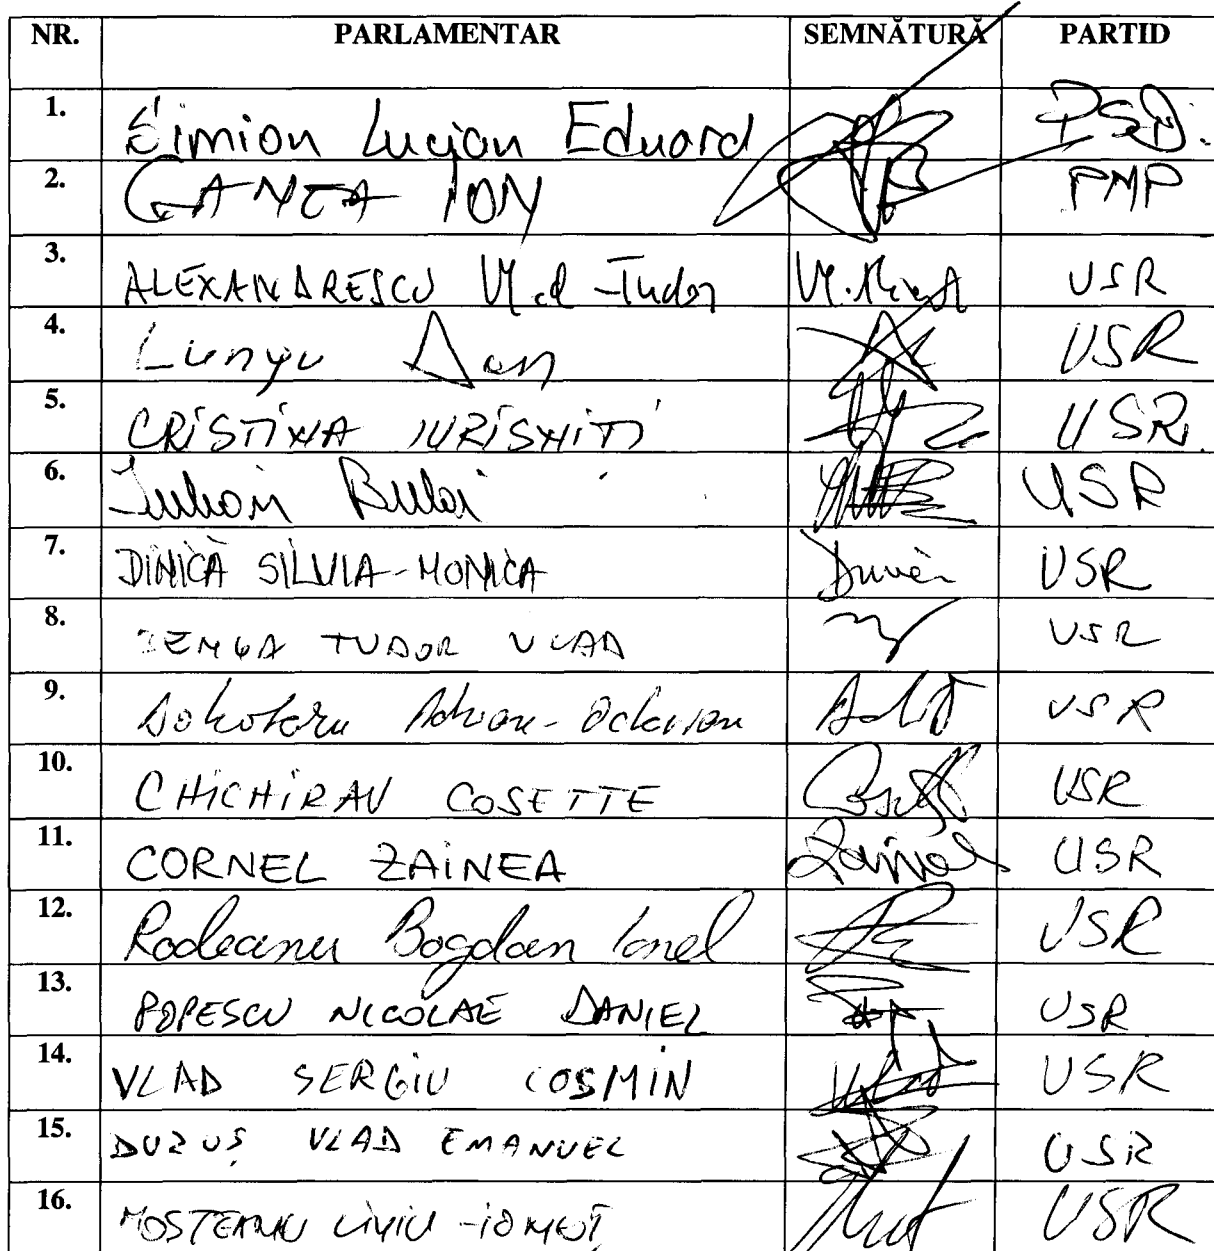 NR. PARLAMENTAR SEMNĂTURĂ PARTID
1. Simion Lucian Eduard PSD.
2. GANEA ION PMP
3. ALEXANDRESCU Vlad-Tudor USR
4. Lungu Dan USR
5. CRISTINA IURIȘNIȚI USR
6. Iulian Bulai USR
7. DINICĂ SILVIA-MONICA Dinică USR
8. BENGA TUDOR VLAD USR
9. Dohotaru Adrian-Octavian USR
10. CHICHIRAU COSETTE USR
11. CORNEL ZAINEA Zainea USR
12. Rodeanu Bogdan Ionel USR
13. POPESCU NICOLAE DANIEL USR
14. VLAD SERGIU COSMIN USR
15. DURUȘ VLAD EMANUEL USR
16. MOSTEANU LIVIU-IONUȚ USR